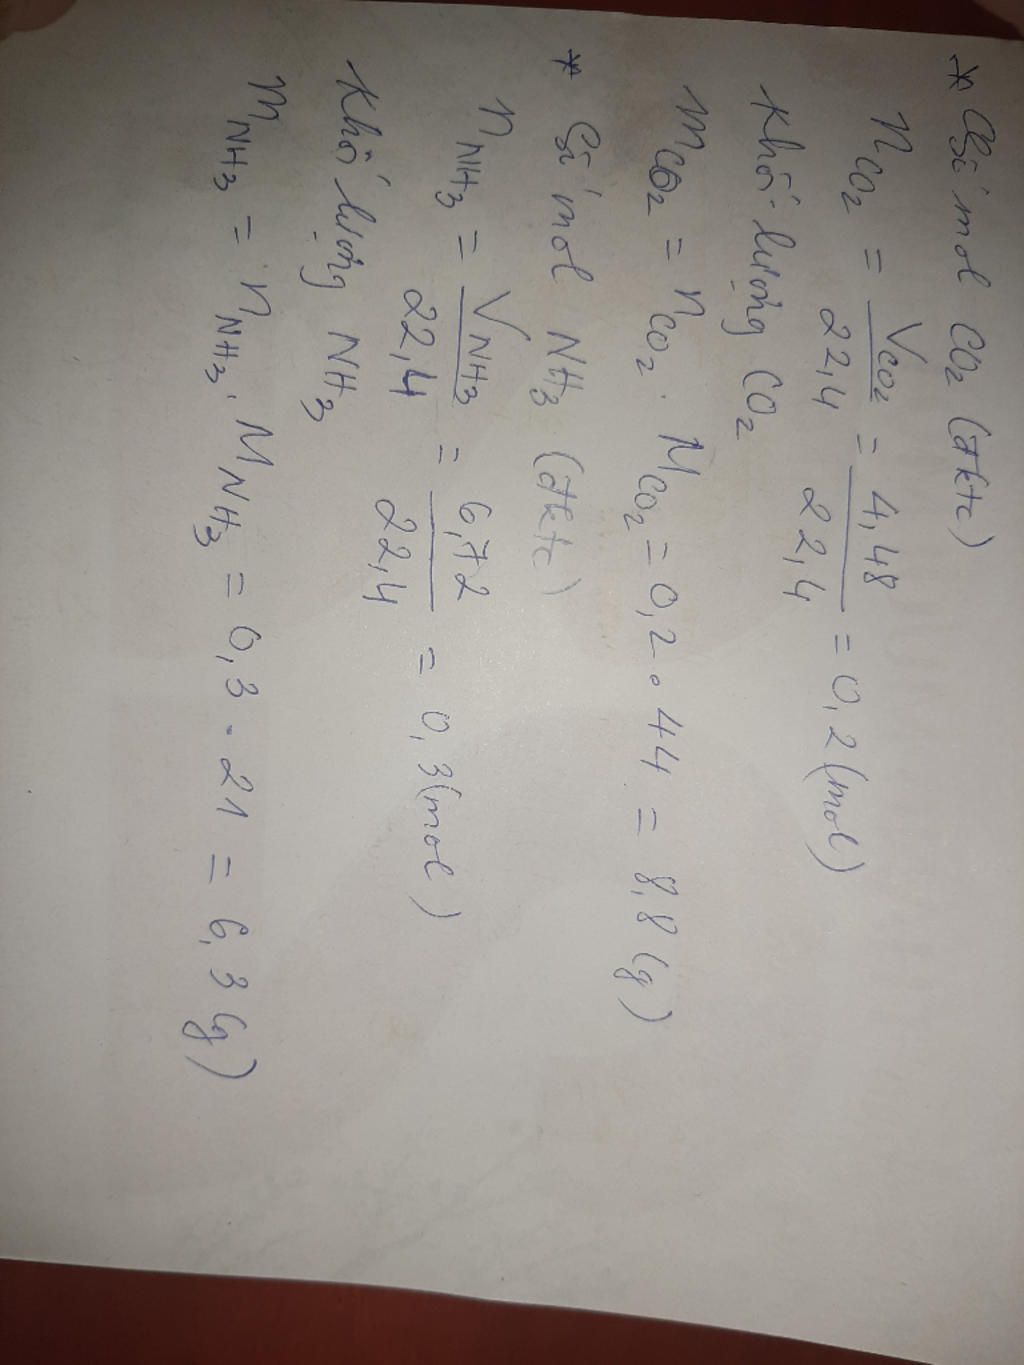 * Số mol CO₂ (đktc)
n_CO₂ = V_CO₂ / 22,4 = 4,48 / 22,4 = 0,2 (mol)
Khối lượng CO₂
m_CO₂ = n_CO₂ . M_CO₂ = 0,2 . 44 = 8,8 (g)
* Số mol NH₃ (đktc)
n_NH₃ = V_NH₃ / 22,4 = 6,72 / 22,4 = 0,3 (mol)
Khối lượng NH₃
m_NH₃ = n_NH₃ . M_NH₃ = 0,3 . 21 = 6,3 (g)